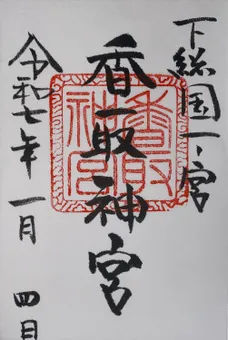 下総国一宮
香取神宮
香取神宮
令和七年一月四日